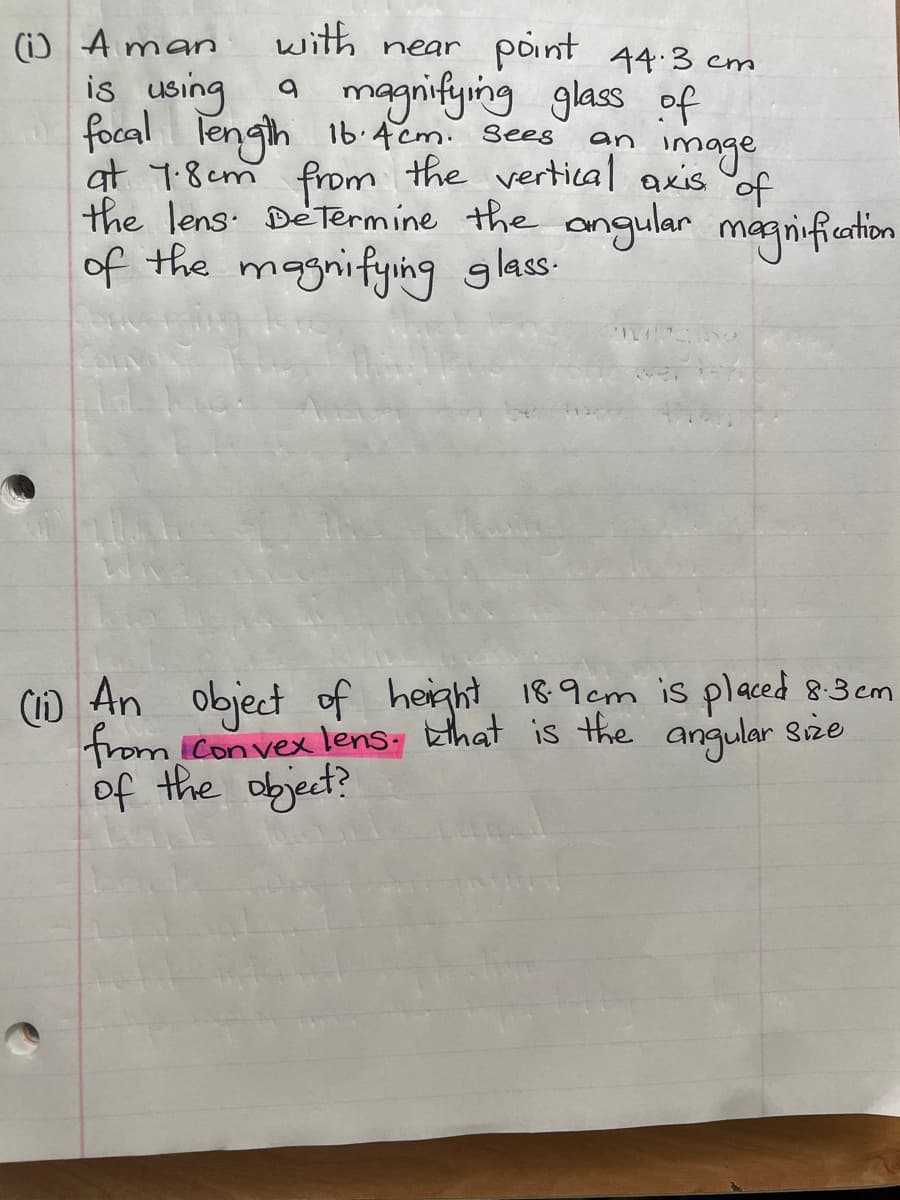 (i) A man with near point 44.3 cm
is using a magnifying glass of
focal length 16.4cm. Sees an image
at 7.8cm from the vertical axis of
the lens. Determine the angular magnification
of the magnifying glass.
(ii) An object of height 18.9cm is placed 8.3cm
from convex lens. What is the angular size
of the object?